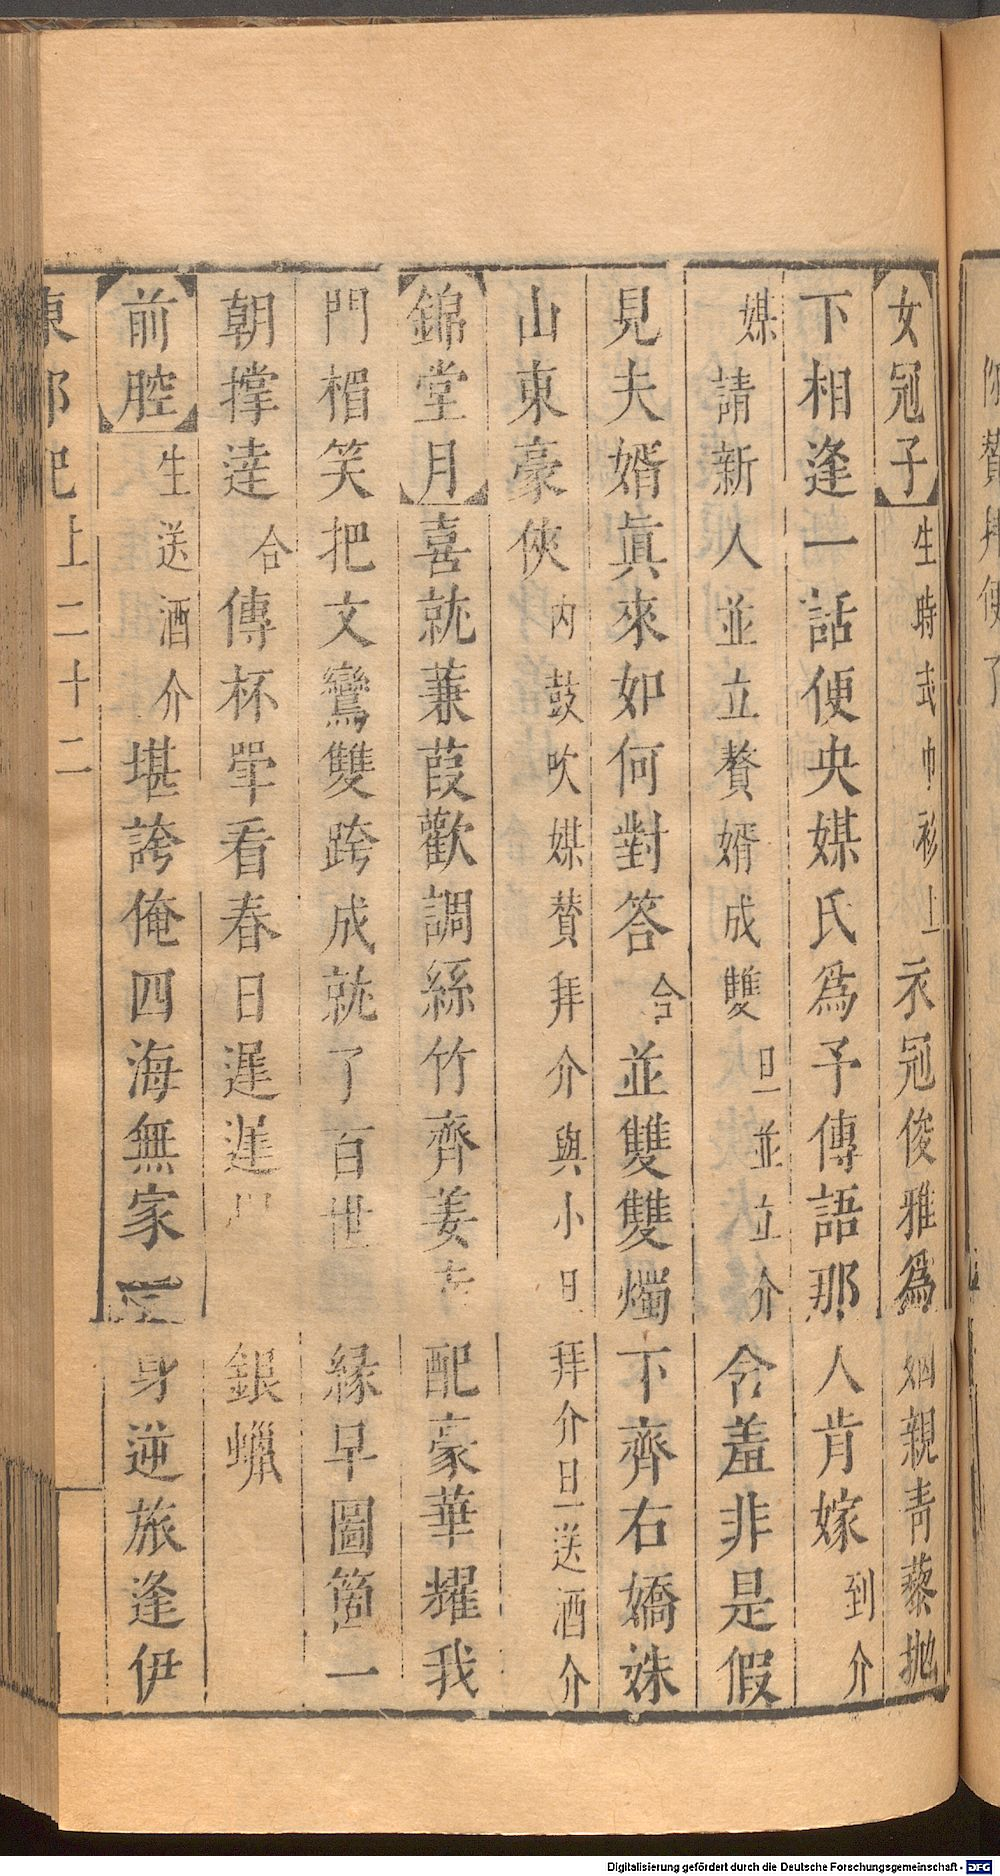 女冠子生時式巾衫上衣冠俊雅爲姻親青藜抛
下相逢一話便央媒氏爲予傳語那人肯嫁到介
媒請新人並立贅婿成雙旦並立介含羞非是假
見夫婿眞來如何對答合並雙雙燭下齊右嬌姝
山東豪俠內鼓吹媒賛拜介與小旦拜介旦送酒介
錦堂月喜就蒹葭歡調絲竹齊姜配豪華擢我
門楣笑把文鸞雙跨成就了百世緣早圖箇一
朝撑達合傳杯斝看春日遲遲銀蠟
前腔生送酒介堪誇俺四海無家一身逆旅逢伊
東郭記上二十二
Digitalisierung gefördert durch die Deutsche Forschungsgemeinschaft - DFG